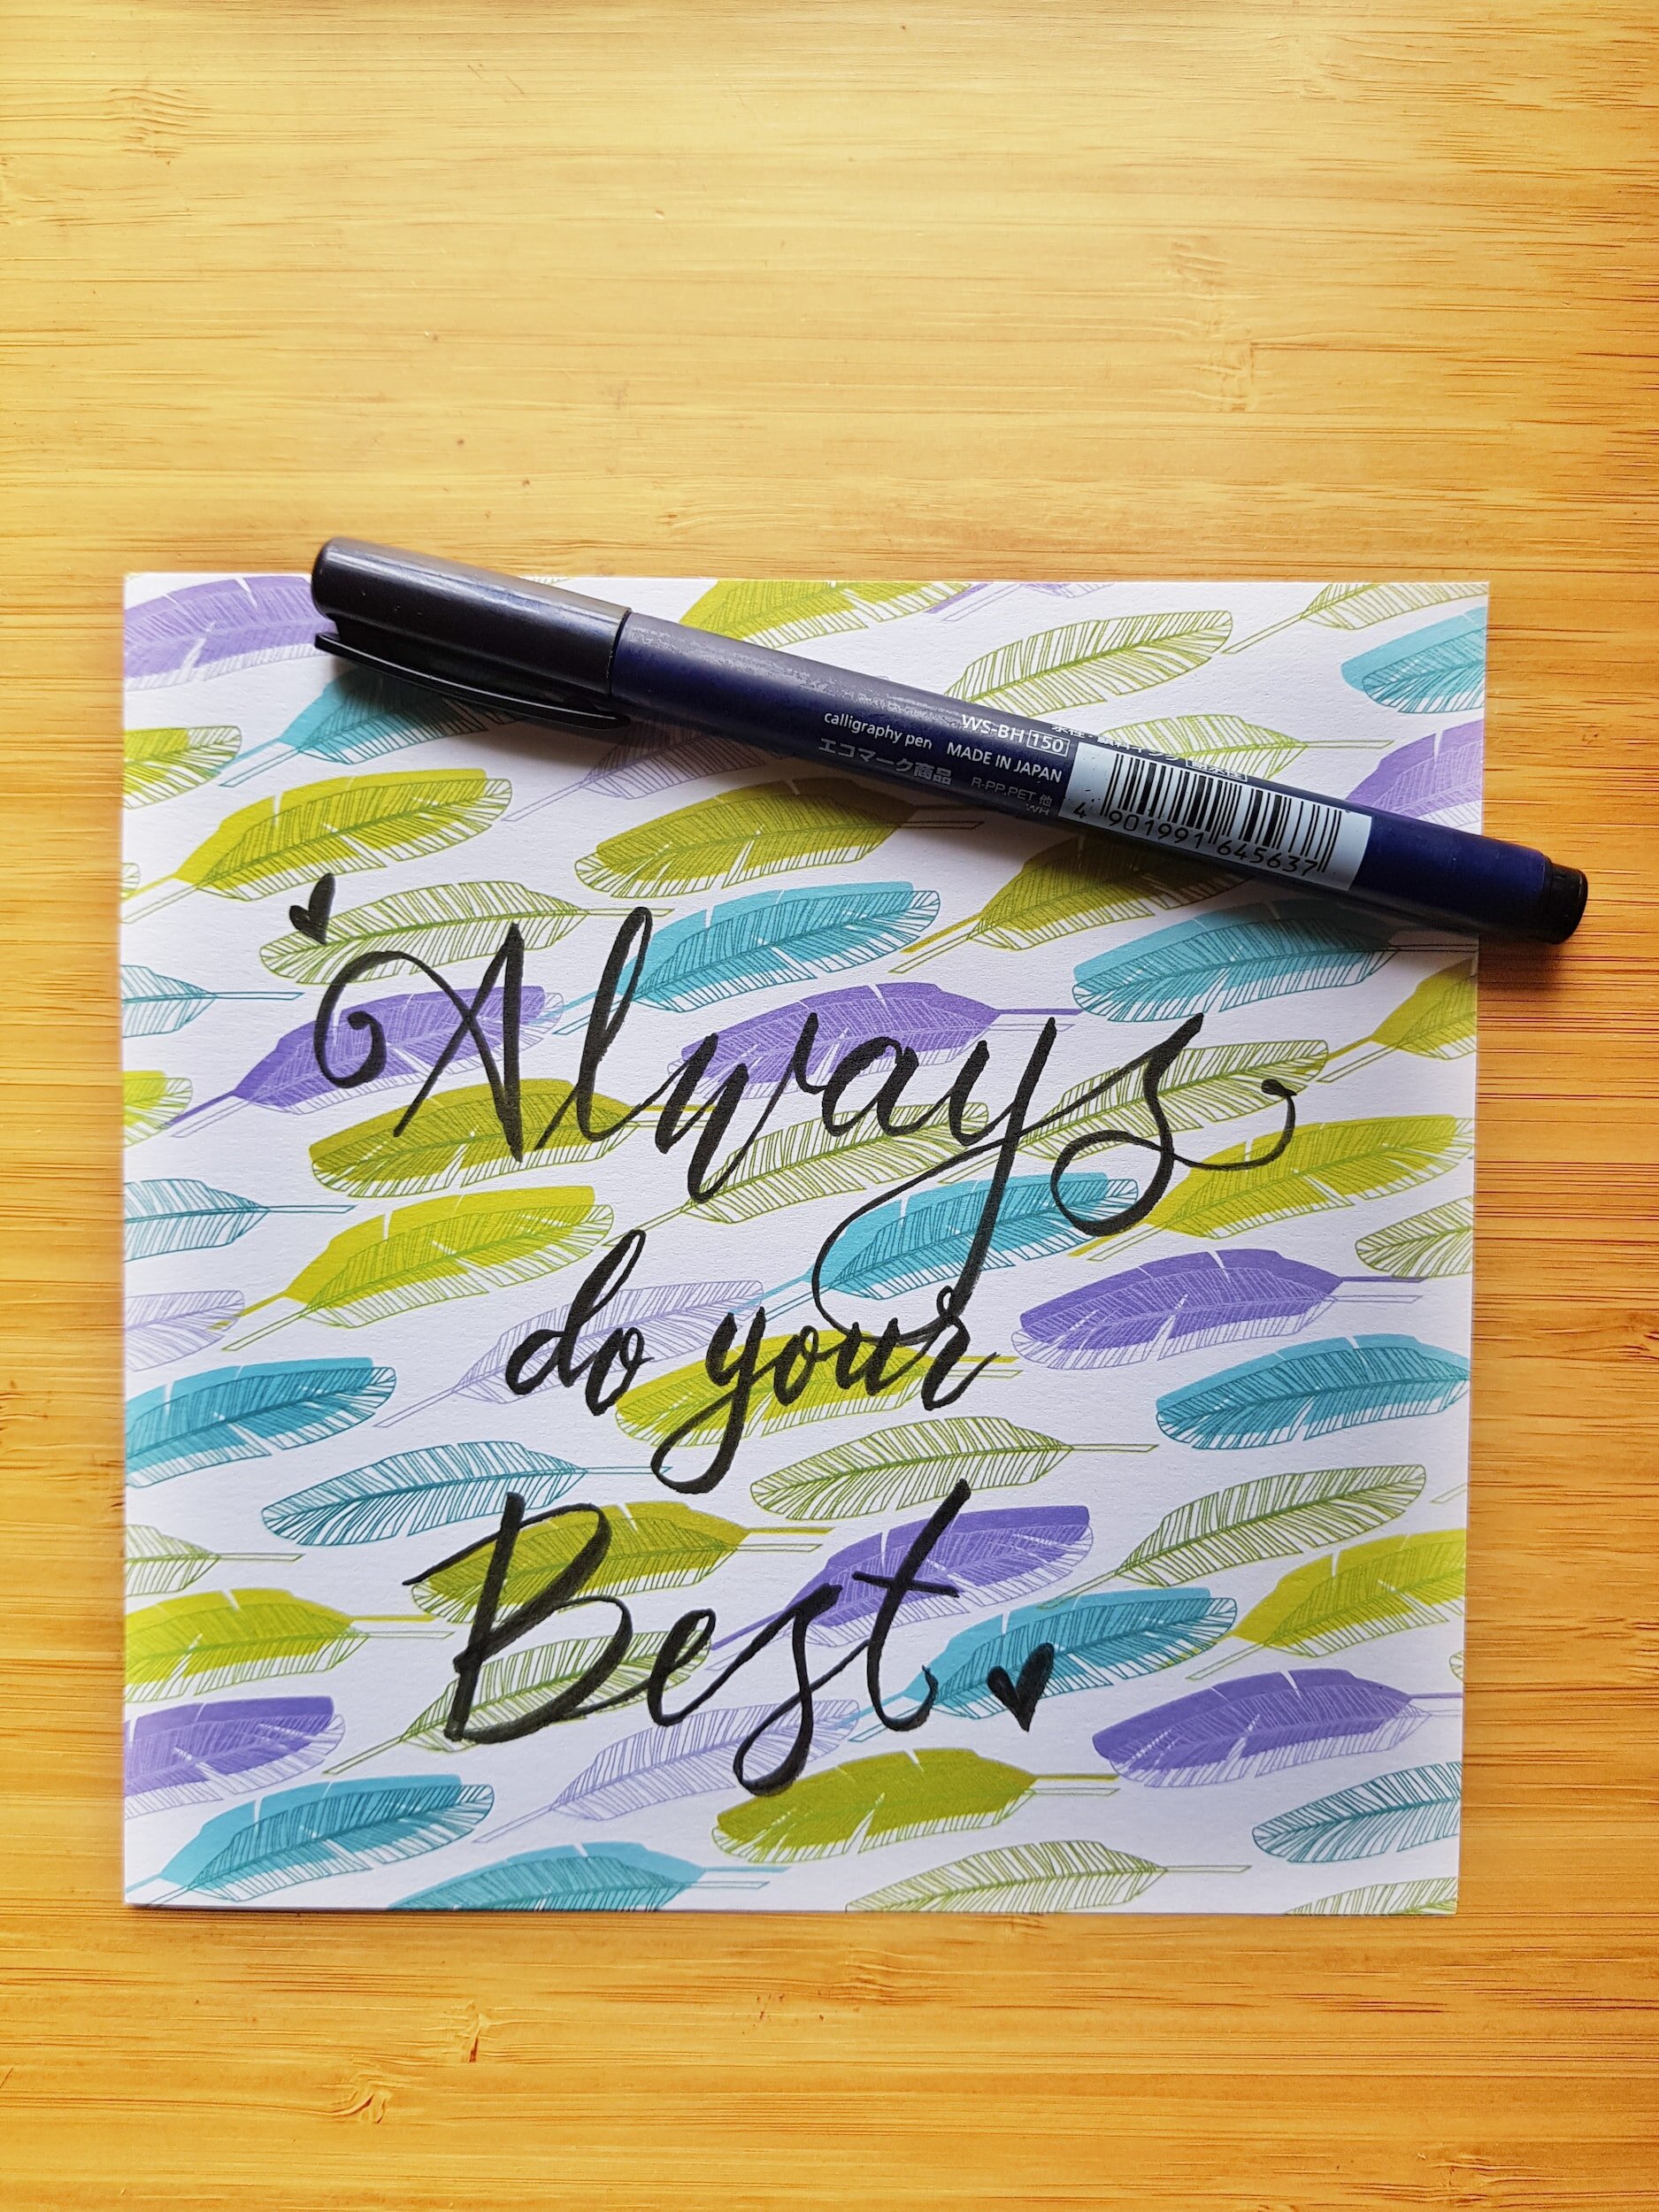 calligraphy pen WS-BH 150
MADE IN JAPAN
エコマーク商品
R-PP.PET 他
WH
4 901991 645637
Always
do your
Best